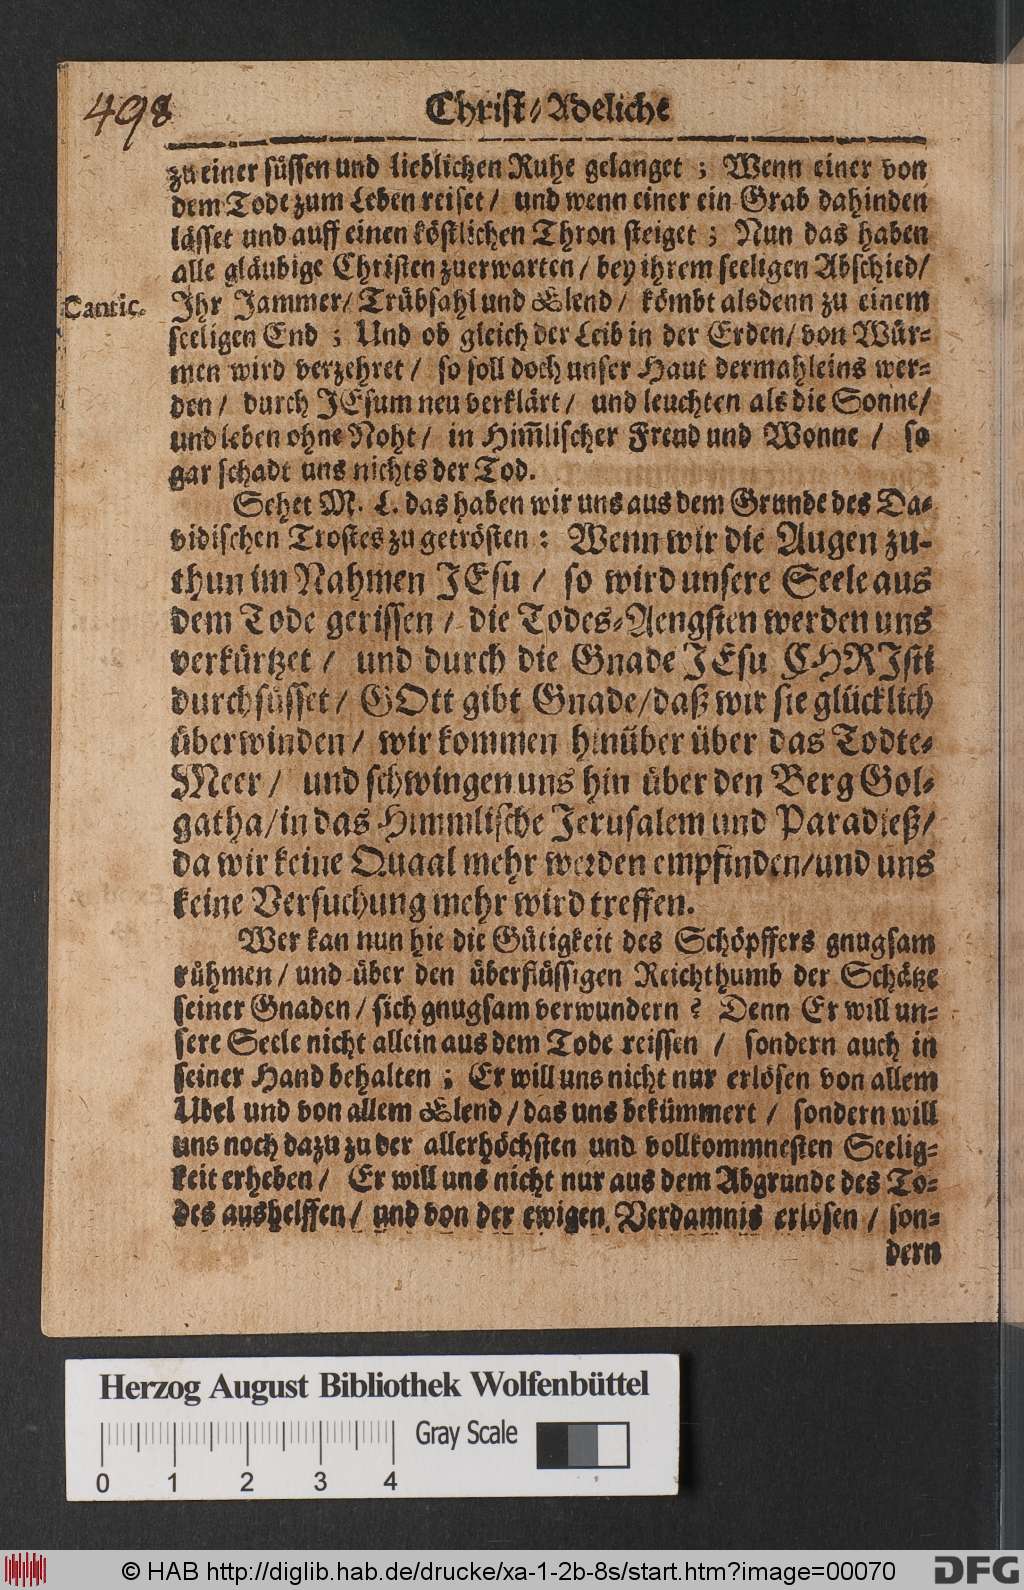 498
Christ-Adeliche
zu einer süssen und lieblichen Ruhe gelanget ; Wenn einer von
dem Tode zum Leben reiset / und wenn einer ein Grab dahinden
lässet und auff einen köstlichen Thron steiget ; Nun das haben
alle gläubige Christen zuerwarten / bey ihrem seeligen Abschied /
Cantic.
Ihr Jammer / Trübsahl und Elend / kömbt alsdenn zu einem
seeligen End ; Und ob gleich der Leib in der Erden / von Wür-
men wird verzehret / so soll doch unser Haut dermahleins wer-
den / durch JEsum neu verklärt / und leuchten als die Sonne /
und leben ohne Noht / in Him̃lischer Freud und Wonne / so
gar schadt uns nichts der Tod.
Sehet M. L. das haben wir uns aus dem Grunde des Da-
vidischen Trostes zu getrösten : Wenn wir die Augen zu-
thun im Nahmen JEsu / so wird unsere Seele aus
dem Tode gerissen / die Todes-Aengsten werden uns
verkürtzet / und durch die Gnade JEsu CHRJsti
durchsüsset / GOtt gibt Gnade / daß wir sie glücklich
überwinden / wir kommen hinüber über das Todte-
Meer / und schwingen uns hin über den Berg Gol-
gatha / in das Himmlische Jerusalem und Paradieß /
da wir keine Quaal mehr werden empfinden / und uns
keine Versuchung mehr wird treffen.
Wer kan nun hie die Gütigkeit des Schöpffers gnugsam
rühmen / und über den überflüssigen Reichthumb der Schätze
seiner Gnaden / sich gnugsam verwundern ? Denn Er will un-
sere Seele nicht allein aus dem Tode reissen / sondern auch in
seiner Hand behalten ; Er will uns nicht nur erlösen von allem
Ubel und von allem Elend / das uns bekümmert / sondern will
uns noch dazu zu der allerhöchsten und vollkommnesten Seelig-
keit erheben / Er will uns nicht nur aus dem Abgrunde des To-
des aushelffen / und von der ewigen Verdamnis erlösen / son-
dern
Herzog August Bibliothek Wolfenbüttel
Gray Scale
0 1 2 3 4
© HAB http://diglib.hab.de/drucke/xa-1-2b-8s/start.htm?image=00070
DFG